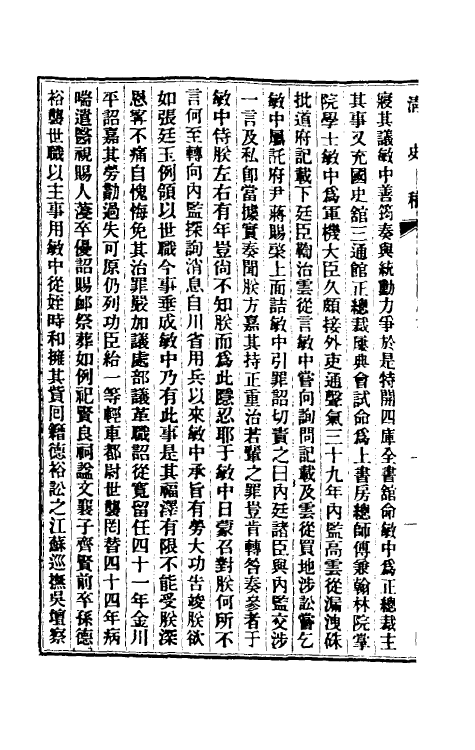 清史稿
寢其議敏中善筠奏與統勳力爭於是特開四庫全書館命敏中爲正總裁主
其事又充國史館三通館正總裁屢典會試命爲上書房總師傅兼翰林院掌
院學士敏中爲軍機大臣久頗接外吏通聲氣三十九年內監高雲從漏洩硃
批道府記載下廷臣鞫治雲從言敏中嘗向詢問記載及雲從買地涉訟嘗乞
敏中屬託府尹蔣賜棨上面詰敏中引罪詔切責之曰內廷諸臣與內監交涉
一言及私卽當據實奏聞朕方嘉其持正重治若輩之罪豈肯轉咎奏參者于
敏中侍朕左右有年豈尙不知朕而爲此隱忍耶于敏中日蒙召對朕何所不
言何至轉向內監探詢消息自川省用兵以來敏中承旨有勞大功告竣朕欲
如張廷玉例領以世職今事垂成敏中乃有此事是其福澤有限不能受朕深
恩寧不痛自愧悔免其治罪嚴加議處部議革職詔從寬留任四十一年金川
平詔嘉其勞勩過失可原仍列功臣給一等輕車都尉世襲罔替四十四年病
喘遣醫視賜人葠卒優詔賜卹祭葬如例祀賢良祠諡文襄子齊賢前卒孫德
裕襲世職以主事用敏中從姪時和擁其貲回籍德裕訟之江蘇巡撫吳壇察